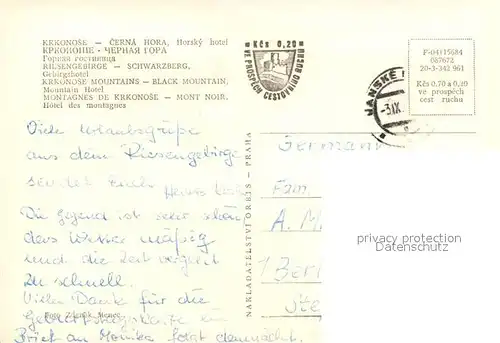 KRKONOŠE – ČERNÁ HORA, Horský hotel
КРКОНОШЕ - ЧЕРНАЯ ГОРА
Горная гостиница
RIESENGEBIRGE – SCHWARZBERG,
Gebirgshotel
KRKONOŠE MOUNTAINS – BLACK MOUNTAIN,
Mountain Hotel
MONTAGNES DE KRKONOŠE – MONT NOIR,
Hôtel des montagnes
Kčs 0,20
VE PROSPĚCH CESTOVNÍHO RUCHU
JANSKÉ
-3.IX.
F-04*15684
087672
20-3-342 961
Kčs 0,70 a 0,20
ve prospěch
cest ruchu
Viele Urlaubsgrüße
aus dem Riesengebirge
sendet Euch
Die Gegend ist sehr schön
das Wetter mäßig
und die Zeit vergeht
zu schnell.
Vielen Dank für die
Geburtstagskarte
Brief an Monika folgt demnächst.
Foto Zdeněk Menec
NAKLADATELSTVÍ ORBIS - PRAHA
Germany
Fam.
A. M
1 Berl
privacy protection
Datenschutz